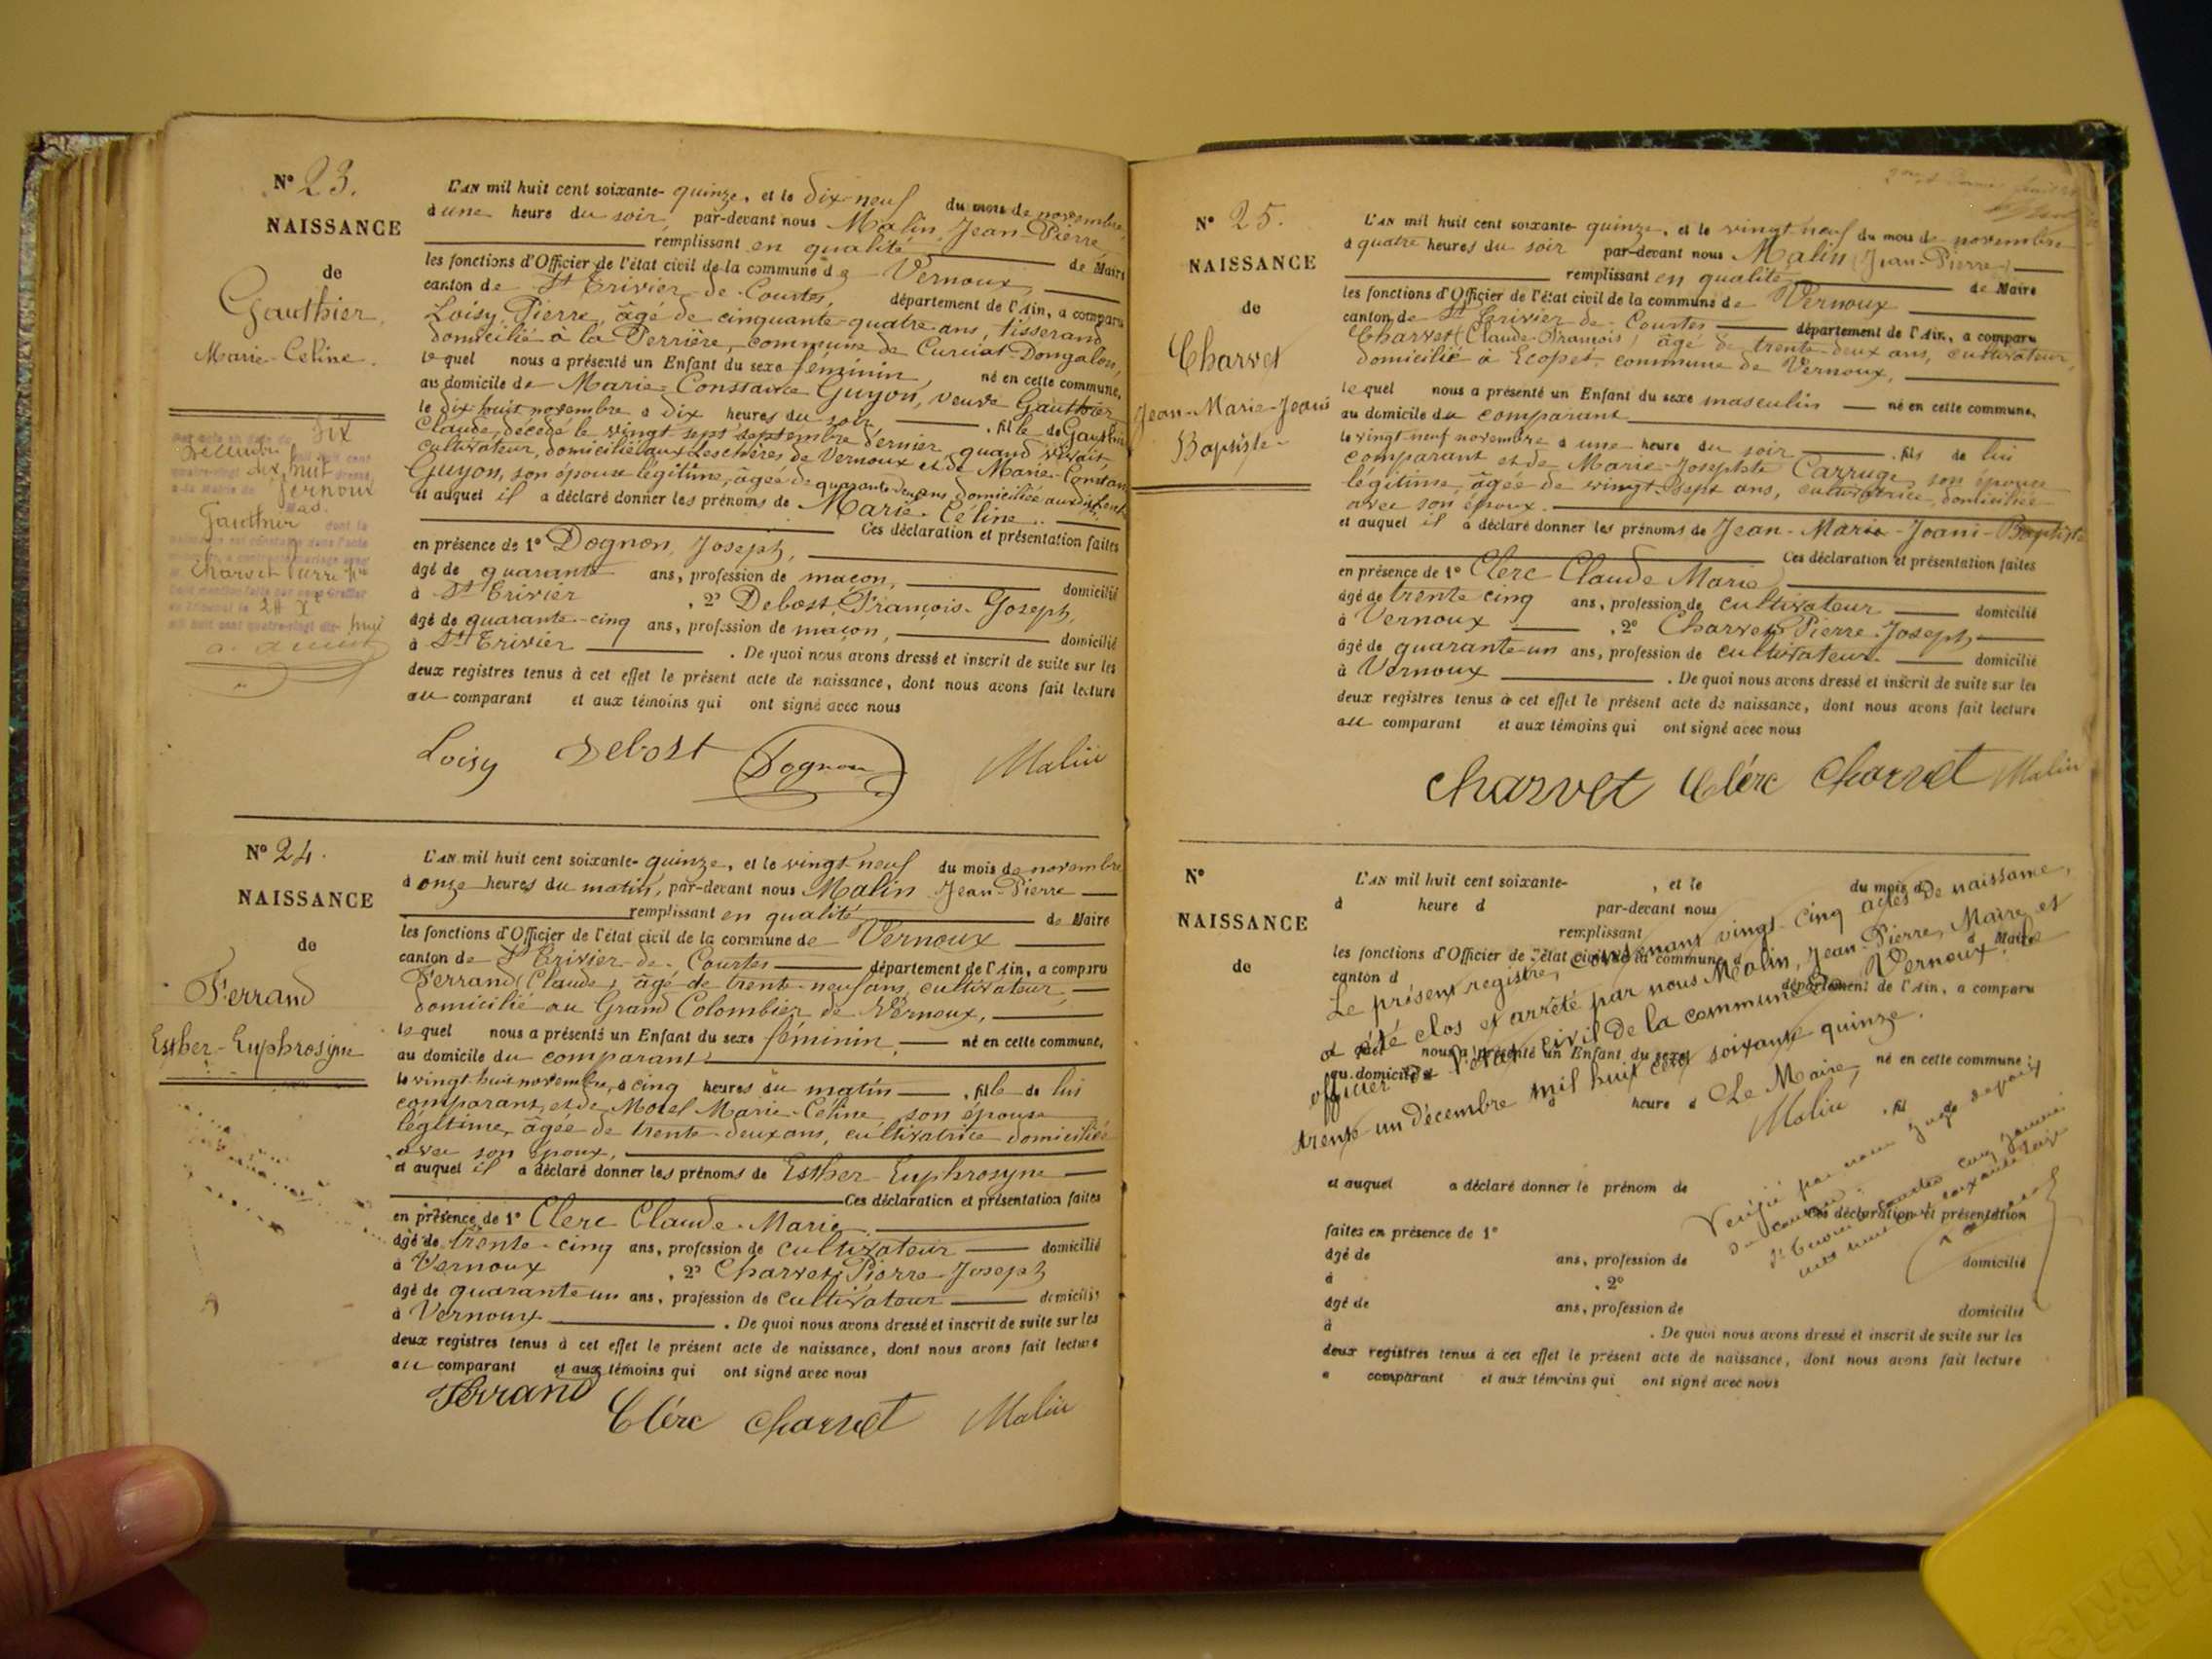 N° 23.
NAISSANCE
de
Gauthier
Marie-Céline.
L'AN mil huit cent soixante-quinze, et le dix-neuf du mois de novembre
à une heure du soir, par-devant nous Malin, Jean-Pierre
remplissant en qualité de Maire
les fonctions d'Officier de l'état civil de la commune de Vernoux,
canton de St Trivier-de-Courtes, département de l'Ain, a comparu
Loisy, Pierre, âgé de cinquante-quatre ans, tisserand,
domicilié à la Perrière, commune de Curciat-Dongalon,
lequel nous a présenté un Enfant du sexe féminin, né en cette commune,
au domicile de Marie-Constance Guyon, veuve Gauthier
le dix-huit novembre à dix heures du soir, fille de Gauthier
Claude, décédé le vingt-sept septembre dernier, quand vivait,
cultivateur, domicilié aux Leschères de Vernoux et de Marie-Constance
Guyon, son épouse légitime, âgée de quarante-deux ans, domiciliée auxdits
et auquel il a déclaré donner les prénoms de Marie-Céline.
Ces déclaration et présentation faites
en présence de 1° Dognon, Joseph,
âgé de quarante ans, profession de maçon, domicilié
à St Trivier, 2° Debost, François-Joseph,
âgé de quarante-cinq ans, profession de maçon, domicilié
à St Trivier. De quoi nous avons dressé et inscrit de suite sur les
deux registres tenus à cet effet le présent acte de naissance, dont nous avons fait lecture
au comparant et aux témoins qui ont signé avec nous
Loisy Debost Dognon Malin
dix
décembre
dix huit
Vernoux
Gauthier
Charvet Pierre
N° 24.
NAISSANCE
de
Ferrand
Esther-Euphrosyne
L'AN mil huit cent soixante-quinze, et le vingt-neuf du mois de novembre
à onze heures du matin, par-devant nous Malin Jean-Pierre
remplissant en qualité de Maire
les fonctions d'Officier de l'état civil de la commune de Vernoux
canton de St Trivier-de-Courtes département de l'Ain, a comparu
Ferrand (Claude), âgé de trente-neuf ans, cultivateur,
domicilié au Grand Colombier de Vernoux,
lequel nous a présenté un Enfant du sexe féminin, né en cette commune,
au domicile du comparant
le vingt-huit novembre, à cinq heures du matin, fille de lui
comparant et de Morel Marie-Céline, son épouse
légitime, âgée de trente-deux ans, cultivatrice domiciliée
avec son époux,
et auquel il a déclaré donner les prénoms de Esther-Euphrosyne
Ces déclaration et présentation faites
en présence de 1° Clerc Claude-Marie
âgé de trente-cinq ans, profession de cultivateur domicilié
à Vernoux, 2° Charvet, Pierre-Joseph
âgé de quarante-un ans, profession de cultivateur domicilié
à Vernoux. De quoi nous avons dressé et inscrit de suite sur les
deux registres tenus à cet effet le présent acte de naissance, dont nous avons fait lecture
au comparant et aux témoins qui ont signé avec nous
Ferrand Clérc Charvet Malin
N° 25.
NAISSANCE
de
Charvet
Jean-Marie-Joani
Baptiste
L'AN mil huit cent soixante-quinze, et le vingt-neuf du mois de novembre
à quatre heures du soir par-devant nous Malin (Jean-Pierre)
remplissant en qualité de Maire
les fonctions d'Officier de l'état civil de la commune de Vernoux
canton de St Trivier-de-Courtes département de l'Ain, a comparu
Charvet (Claude-François) âgé de trente-deux ans, cultivateur,
domicilié à Ecopet, commune de Vernoux,
lequel nous a présenté un Enfant du sexe masculin né en cette commune,
au domicile du comparant
le vingt-neuf novembre à une heure du soir, fils de lui
comparant et de Marie-Josephte Carruge, son épouse
légitime, âgée de vingt-sept ans, cultivatrice, domiciliée
avec son époux.
et auquel il a déclaré donner les prénoms de Jean-Marie-Joani-Baptiste
Ces déclaration et présentation faites
en présence de 1° Clerc Claude Marie
âgé de trente cinq ans, profession de cultivateur domicilié
à Vernoux, 2° Charvet, Pierre-Joseph
âgé de quarante-un ans, profession de cultivateur domicilié
à Vernoux. De quoi nous avons dressé et inscrit de suite sur les
deux registres tenus à cet effet le présent acte de naissance, dont nous avons fait lecture
au comparant et aux témoins qui ont signé avec nous
Charvet Clérc Charvet Malin
N°
NAISSANCE
de
L'AN mil huit cent soixante- , et le du mois d
à heure d par-devant nous
remplissant
les fonctions d'Officier de l'état civil de la commune d Maire
canton d département de l'Ain, a comparu
Le présent registre, contenant vingt-cinq actes de naissance,
a été clos et arrêté par nous Malin, Jean-Pierre, Maire et
officier de l'état civil de la commune de Vernoux, le
trente-un décembre mil huit cent soixante quinze.
Le Maire,
Malin
quel nous a présenté un Enfant du sexe né en cette commune,
au domicile d
heure d , fil de
et auquel a déclaré donner le prénom de
Ces déclaration et présentation
faites en présence de 1°
âgé de ans, profession de domicilié
à , 2°
âgé de ans, profession de domicilié
à . De quoi nous avons dressé et inscrit de suite sur les
deux registres tenus à cet effet le présent acte de naissance, dont nous avons fait lecture
a comparant et aux témoins qui ont signé avec nous
Vérifié par nous juge de paix